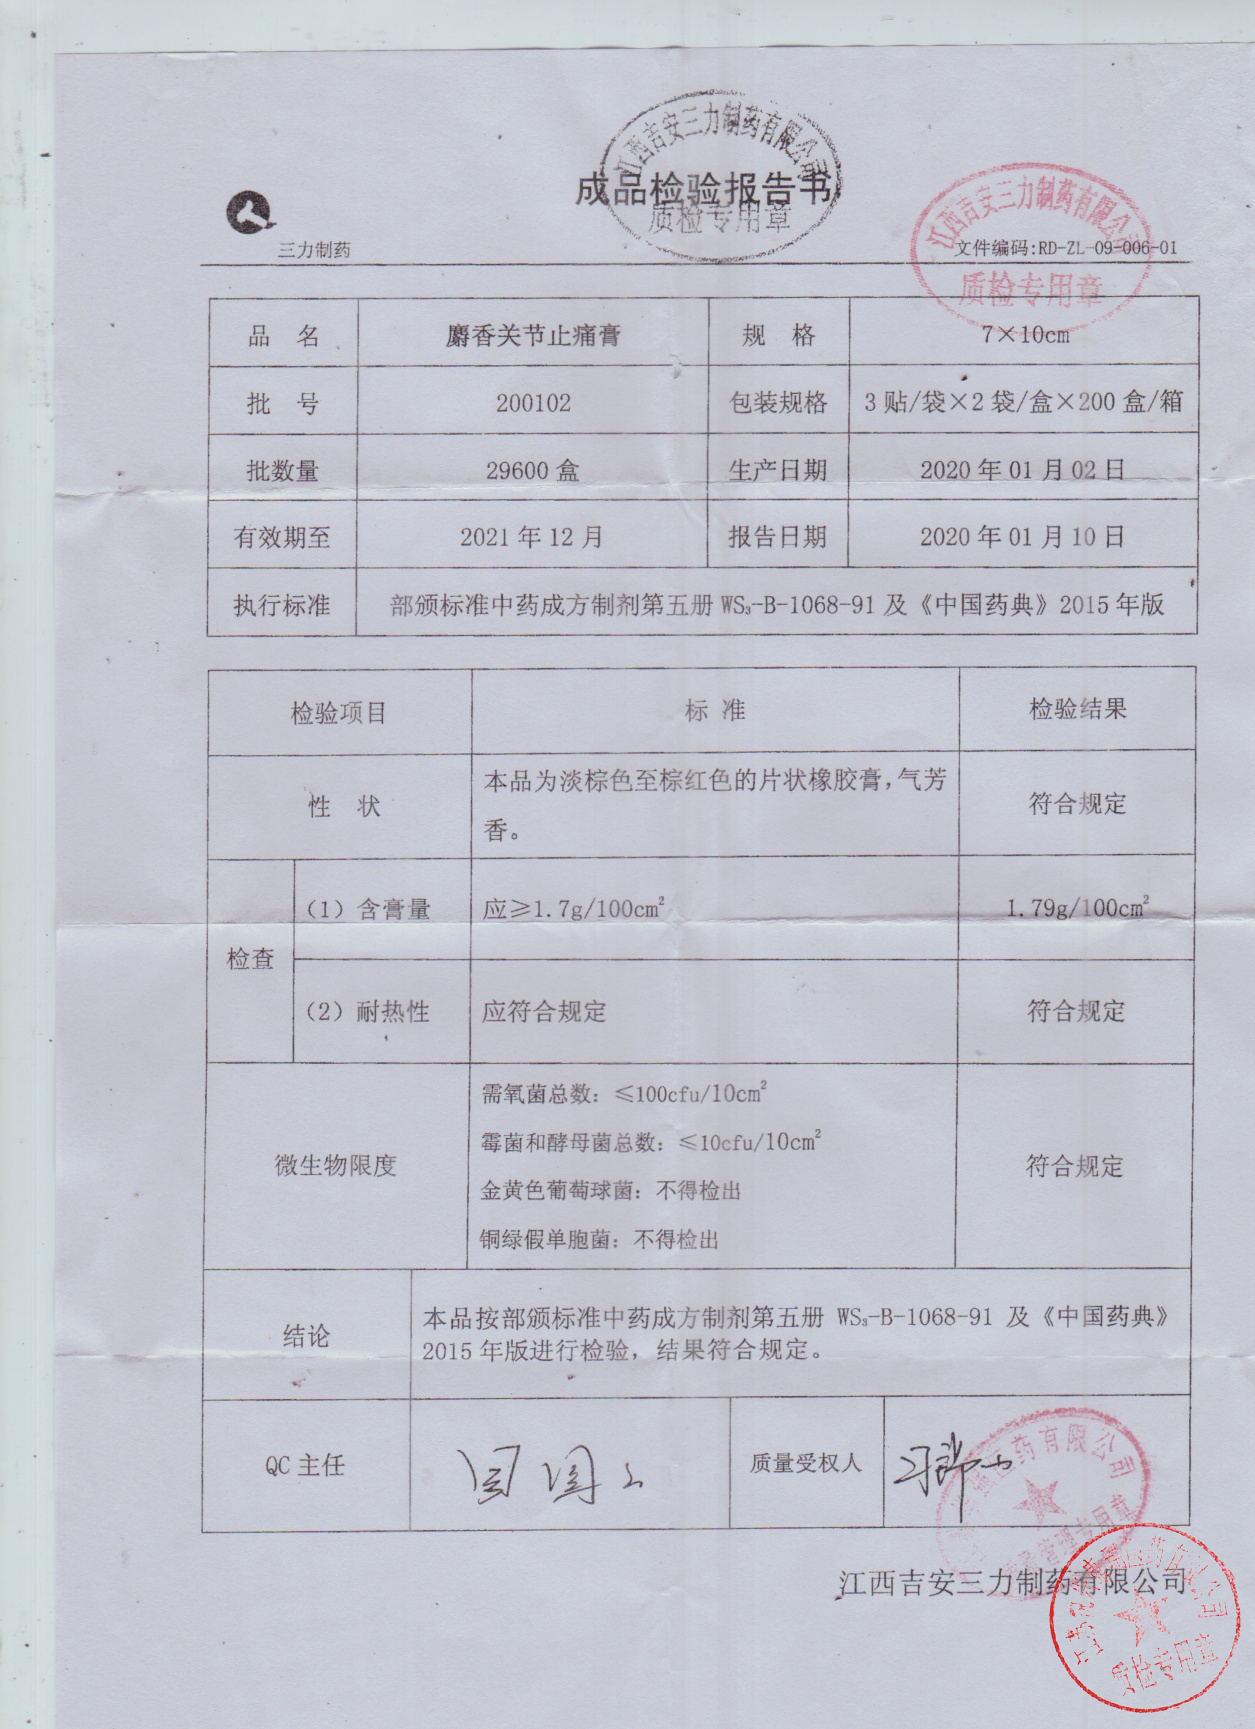 江西吉安三力制药有限公司
成品检验报告书
质检专用章
三力制药
江西吉安三力制药有限公司
文件编码:RD-ZL-09-006-01
质检专用章
品 名 麝香关节止痛膏 规 格 7×10cm
批 号 200102 包装规格 3贴/袋×2袋/盒×200盒/箱
批数量 29600盒 生产日期 2020年01月02日
有效期至 2021年12月 报告日期 2020年01月10日
执行标准 部颁标准中药成方制剂第五册WS₃-B-1068-91及《中国药典》2015年版
检验项目 标 准 检验结果
性 状 本品为淡棕色至棕红色的片状橡胶膏,气芳
香。 符合规定
检查 (1)含膏量 应≥1.7g/100cm² 1.79g/100cm²
(2)耐热性 应符合规定 符合规定
微生物限度 需氧菌总数:≤100cfu/10cm²
霉菌和酵母菌总数:≤10cfu/10cm²
金黄色葡萄球菌:不得检出
铜绿假单胞菌:不得检出
符合规定
结论 本品按部颁标准中药成方制剂第五册 WS₃-B-1068-91 及《中国药典》
2015年版进行检验,结果符合规定。
QC主任 质量受权人
医药有限公司
管理专用章
江西吉安三力制药有限公司
药有限公司
质检专用章